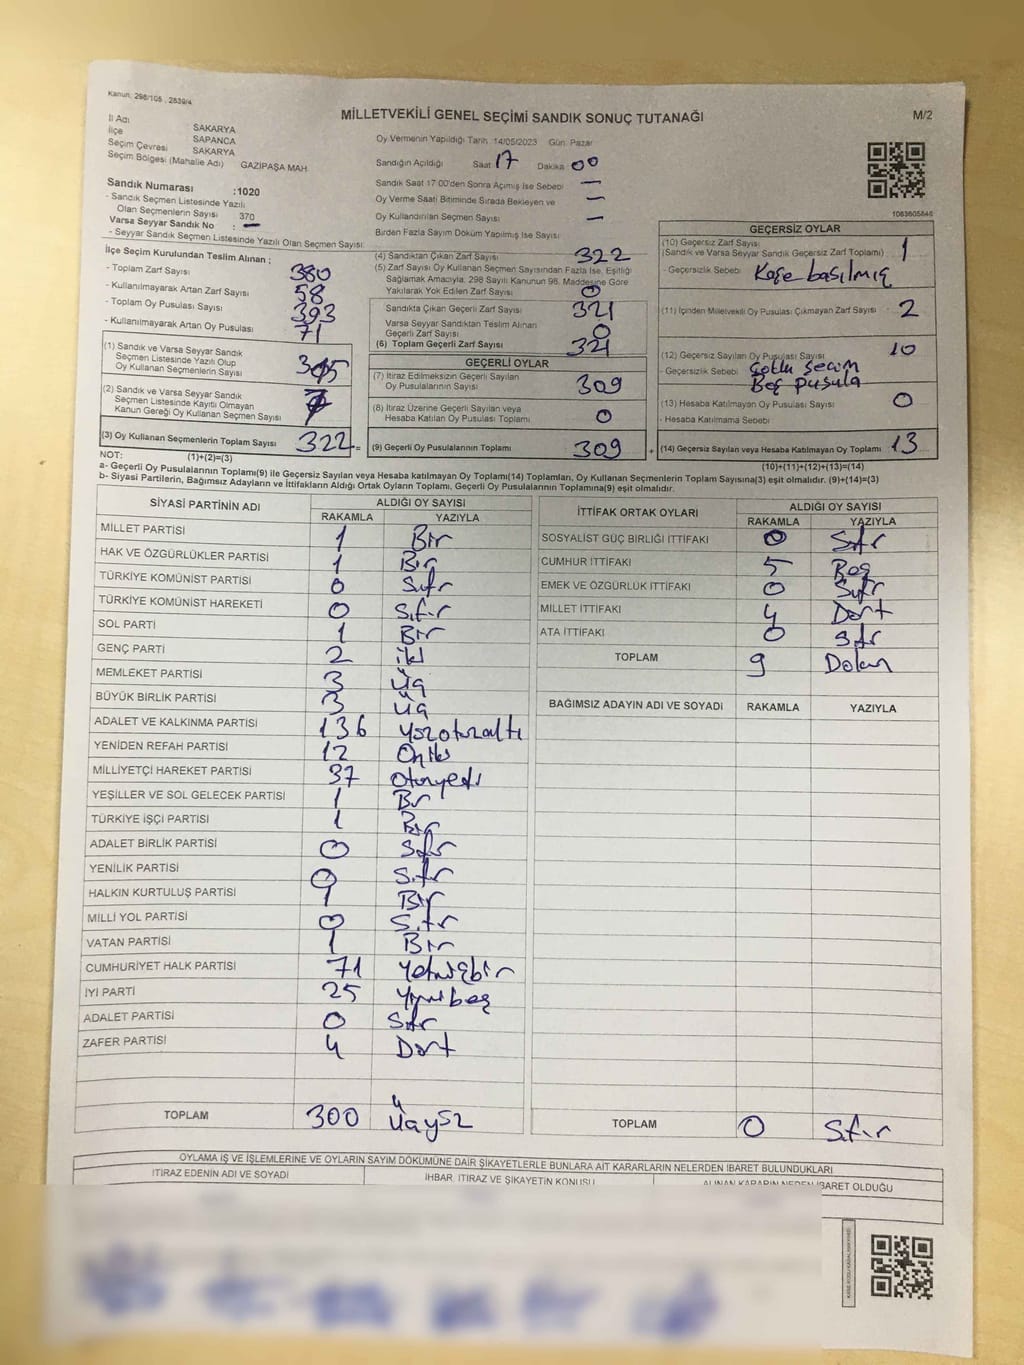 Kanun, 298/105 , 2839/4
MİLLETVEKİLİ GENEL SEÇİMİ SANDIK SONUÇ TUTANAĞI
M/2
İl Adı SAKARYA
İlçe SAPANCA
Seçim Çevresi SAKARYA
Seçim Bölgesi (Mahalle Adı) GAZİPAŞA MAH
Sandık Numarası :1020
- Sandık Seçmen Listesinde Yazılı
Olan Seçmenlerin Sayısı 370
Varsa Seyyar Sandık No : —
- Seyyar Sandık Seçmen Listesinde Yazılı Olan Seçmen Sayısı:
Oy Vermenin Yapıldığı Tarih 14/05/2023 Gün: Pazar
Sandığın Açıldığı Saat 17 Dakika 00
Sandık Saat 17:00'den Sonra Açılmış İse Sebebi —
Oy Verme Saati Bitiminde Sırada Bekleyen ve —
Oy Kullandırılan Seçmen Sayısı —
Birden Fazla Sayım Döküm Yapılmış İse Sayısı
1083605846
İlçe Seçim Kurulundan Teslim Alınan ;
- Toplam Zarf Sayısı 380
- Kullanılmayarak Artan Zarf Sayısı 58
- Toplam Oy Pusulası Sayısı 393
- Kullanılmayarak Artan Oy Pusulası 71
(1) Sandık ve Varsa Seyyar Sandık
Seçmen Listesinde Yazılı Olup
Oy Kullanan Seçmenlerin Sayısı
(2) Sandık ve Varsa Seyyar Sandık
Seçmen Listesinde Kayıtlı Olmayan
Kanun Gereği Oy Kullanan Seçmen Sayısı
(3) Oy Kullanan Seçmenlerin Toplam Sayısı 322 =
(4) Sandıktan Çıkan Zarf Sayısı 322
(5) Zarf Sayısı Oy Kullanan Seçmen Sayısından Fazla İse, Eşitliği
Sağlamak Amacıyla, 298 Sayılı Kanunun 98. Maddesine Göre
Yakılarak Yok Edilen Zarf Sayısı 0
Sandıkta Çıkan Geçerli Zarf Sayısı 321
Varsa Seyyar Sandıktan Teslim Alınan
Geçerli Zarf Sayısı 0
(6) Toplam Geçerli Zarf Sayısı 321
GEÇERLİ OYLAR
(7) İtiraz Edilmeksizin Geçerli Sayılan
Oy Pusulalarının Sayısı 309
(8) İtiraz Üzerine Geçerli Sayılan veya
Hesaba Katılan Oy Pusulası Toplamı 0
(9) Geçerli Oy Pusulalarının Toplamı 309 +
GEÇERSİZ OYLAR
(10) Geçersiz Zarf Sayısı
(Sandık ve Varsa Seyyar Sandık Geçersiz Zarf Toplamı) 1
- Geçersizlik Sebebi Kaşe basılmış
(11) İçinden Milletvekili Oy Pusulası Çıkmayan Zarf Sayısı 2
(12) Geçersiz Sayılan Oy Pusulası Sayısı 10
- Geçersizlik Sebebi Çoklu seçim
Boş pusula
(13) Hesaba Katılmayan Oy Pusulası Sayısı 0
- Hesaba Katılmama Sebebi
(14) Geçersiz Sayılan veya Hesaba Katılmayan Oy Pusulası Toplamı 13
NOT: (1)+(2)=(3)
(10)+(11)+(12)+(13)=(14)
a- Geçerli Oy Pusulalarının Toplamı(9) ile Geçersiz Sayılan veya Hesaba katılmayan Oy Toplamı(14) Toplamları, Oy Kullanan Seçmenlerin Toplam Sayısına(3) eşit olmalıdır. (9)+(14)=(3)
b- Siyasi Partilerin, Bağımsız Adayların ve İttifakların Aldığı Ortak Oyların Toplamı, Geçerli Oy Pusulalarının Toplamına(9) eşit olmalıdır.
SİYASİ PARTİNİN ADI ALDIĞI OY SAYISI
RAKAMLA YAZIYLA
MİLLET PARTİSİ 1 Bir
HAK VE ÖZGÜRLÜKLER PARTİSİ 1 Bir
TÜRKİYE KOMÜNİST PARTİSİ 0 Sıfır
TÜRKİYE KOMÜNİST HAREKETİ 0 Sıfır
SOL PARTİ 1 Bir
GENÇ PARTİ 2 iki
MEMLEKET PARTİSİ 3 Üç
BÜYÜK BİRLİK PARTİSİ 3 Üç
ADALET VE KALKINMA PARTİSİ 136 Yüzotuzaltı
YENİDEN REFAH PARTİSİ 12 Oniki
MİLLİYETÇİ HAREKET PARTİSİ 37 Otuzyedi
YEŞİLLER VE SOL GELECEK PARTİSİ 1 Bir
TÜRKİYE İŞÇİ PARTİSİ 1 Bir
ADALET BİRLİK PARTİSİ 0 Sıfır
YENİLİK PARTİSİ 0 Sıfır
HALKIN KURTULUŞ PARTİSİ 1 Bir
MİLLİ YOL PARTİSİ 0 Sıfır
VATAN PARTİSİ 1 Bir
CUMHURİYET HALK PARTİSİ 71 Yetmişbir
İYİ PARTİ 25 Yirmibeş
ADALET PARTİSİ 0 Sıfır
ZAFER PARTİSİ 4 Dört
TOPLAM 300 Üçyüz
İTTİFAK ORTAK OYLARI ALDIĞI OY SAYISI
RAKAMLA YAZIYLA
SOSYALİST GÜÇ BİRLİĞİ İTTİFAKI 0 Sıfır
CUMHUR İTTİFAKI 5 Beş
EMEK VE ÖZGÜRLÜK İTTİFAKI 0 Sıfır
MİLLET İTTİFAKI 4 Dört
ATA İTTİFAKI 0 Sıfır
TOPLAM 9 Dokuz
BAĞIMSIZ ADAYIN ADI VE SOYADI RAKAMLA YAZIYLA
TOPLAM 0 Sıfır
OYLAMA İŞ VE İŞLEMLERİNE VE OYLARIN SAYIM DÖKÜMÜNE DAİR ŞİKAYETLERLE BUNLARA AİT KARARLARIN NELERDEN İBARET BULUNDUKLARI
İTİRAZ EDENİN ADI VE SOYADI İHBAR, İTİRAZ VE ŞİKAYETİN KONUSU ALINAN KARARIN NEDEN İBARET OLDUĞU